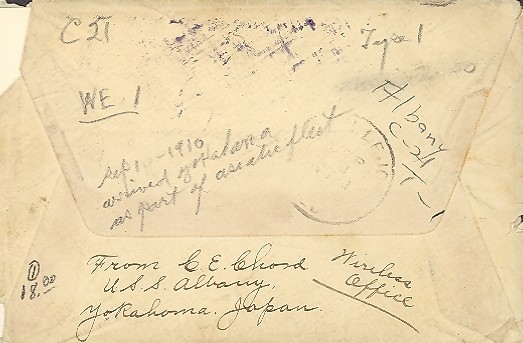 C II
Type 1
WE. 1
Albany
C 21
T-1
Sep 1 - 1910
arrived yokahama
as part of asiatic fleet
1
18.00
From C. E. Chord
U.S.S. Albany,
Yokahoma. Japan.
Wireless
Office